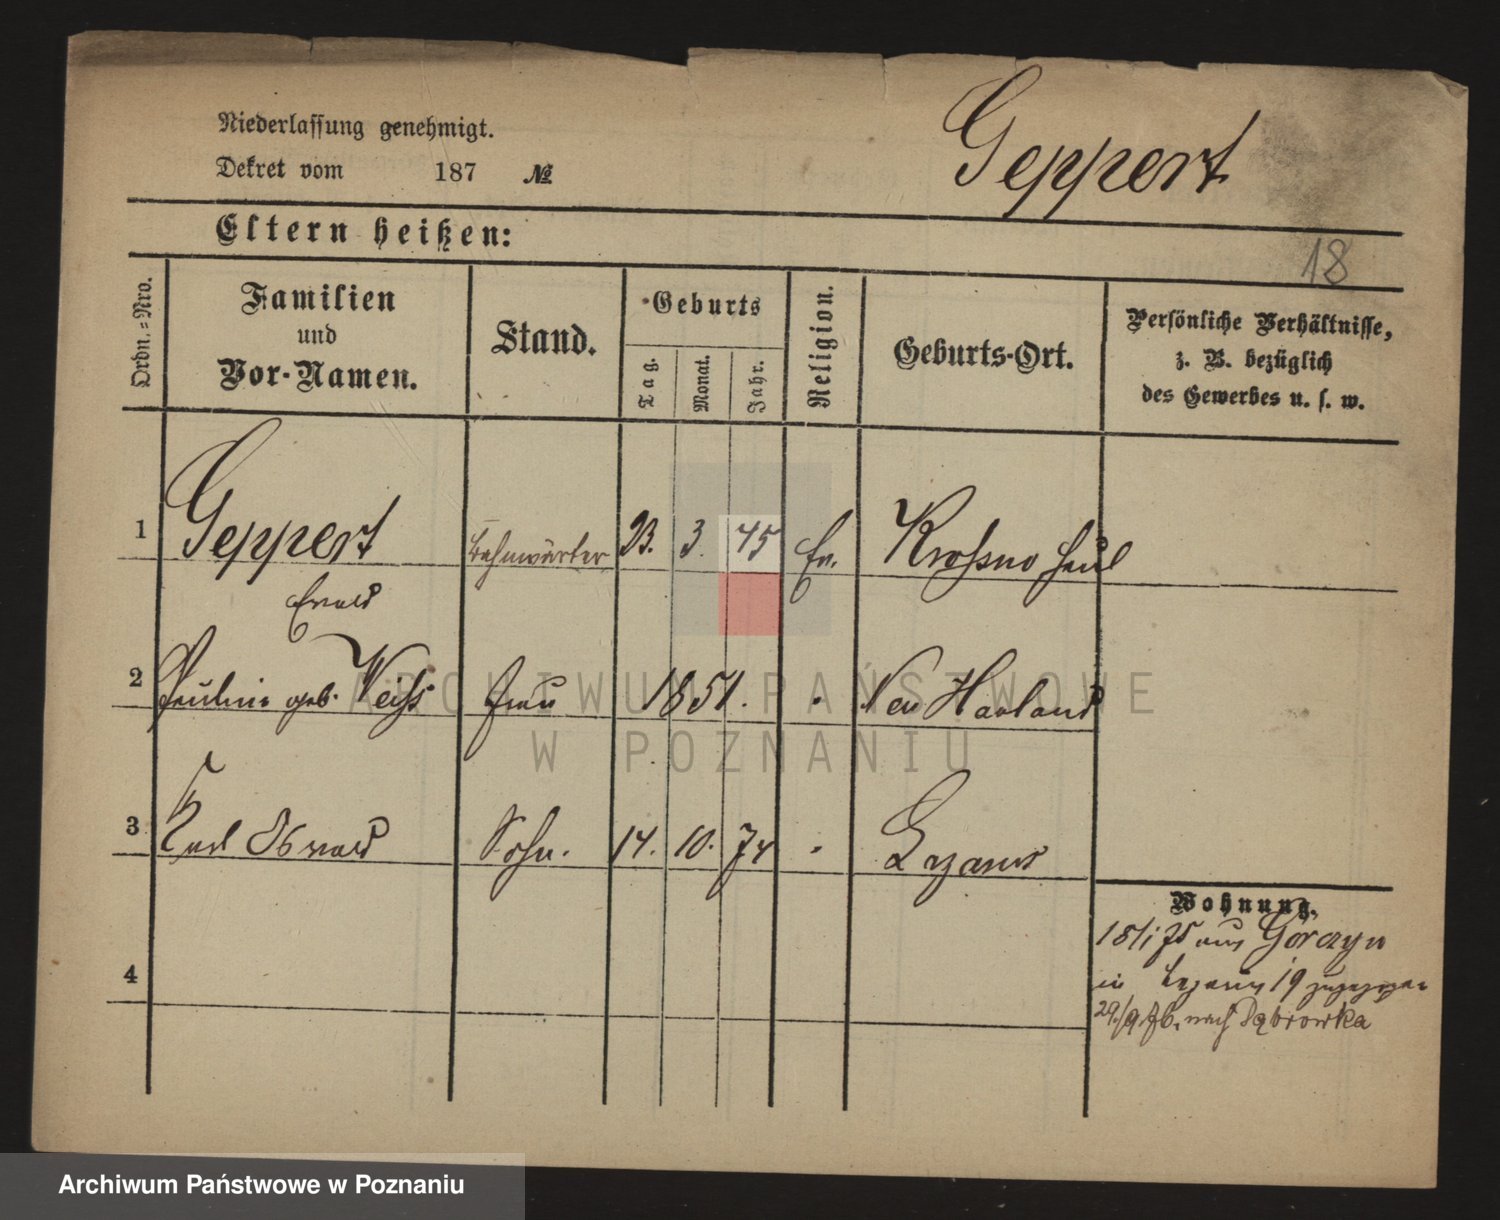 Niederlassung genehmigt.
Geppert
Dekret vom 187 №
Eltern heißen:
18
Ordn.-Nro.
Familien
und
Vor-Namen.
Stand.
Geburts
Tag.
Monat.
Jahr.
Religion.
Geburts-Ort.
Persönliche Verhältnisse,
z. B. bezüglich
des Gewerbes u. s. w.
1 Geppert Bahnwärter 23. 3. 45 Ev. Krosno Haul
2 Pauline geb. Weiß Frau 1851. " Neu Hauland
3 Karl Oswald Sohn. 14. 10. 74 " Lazarus
4
Wohnung.
18/1 75 aus Górczyn
in Lazarus 19 zugezogen
29./9. 76. nach Dąbrowka
ARCHIWUM PAŃSTWOWE
W POZNANIU
Archiwum Państwowe w Poznaniu